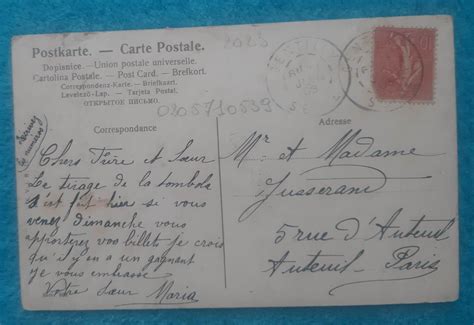 Postkarte. — Carte Postale.
Dopisnice. - Union postale universelle.
Cartolina Postale. — Post Card. — Brefkort.
Correspondenz-Karte. — Briefkaart.
Levelező-Lap. — Tarjeta Postal.
ОТКРЫТОЕ ПИСЬМО.
0206710639
Correspondance
Chers Frère et Sœur
Le tirage de la tombola
s'est fait hier si vous
venez dimanche vous
apporterez vos billet je crois
qu'il y en a un gagnant
je vous embrasse
Votre sœur Maria
Mr et Madame
Jusserand
5 rue d'Auteuil
Auteuil - Paris